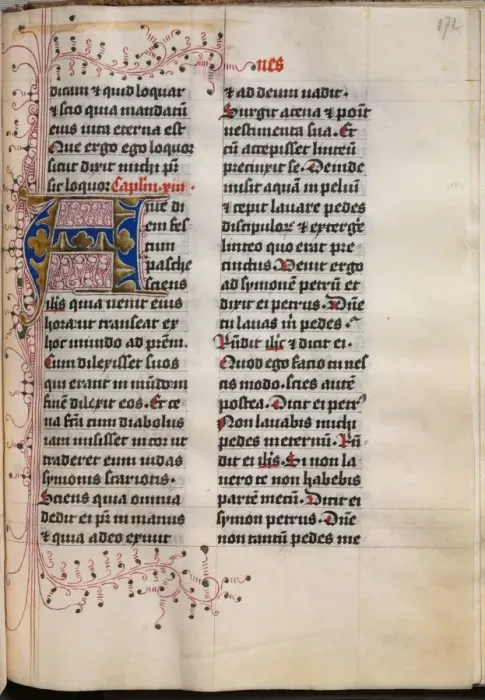 172
nes
dicam ⁊ quid loquar
⁊ scio quia mandatū
eius uita eterna est
Que ergo ego loquor
sicut dixit michi pr̄
sic loquor Caplm̄ .xiii.
Ante di
em fes
tum
pasche
sciens
ih̄s quia uenit eius
hora ut transeat ex
hoc mundo ad prēm.
Cum dilexisset suos
qui erant in mūdo in
finē dilexit eos. Et ce
na fcā cum diabolus
iam misisset in cor ut
traderet eum iudas
symonis scariotis.
Sciens quia omnia
dedit ei pr̄ in manus
⁊ quia adeo exiuit
⁊ ad deum uadit.
Surgit acena ⁊ ponit
uestimenta sua. Et
cū accepisset linteū
precinxit se. Deinde
misit aquā in peluī
⁊ cepit lauare pedes
discipulorꝝ ⁊ extergē
linteo quo erat pre-
cinctus. Uenit ergo
ad symonē petrū et
dixit ei petrus. Dn̄e
tu lauas m̄ pedes.
Rn̄dit ih̄s ⁊ dicit ei.
Quod ego facio tu nes
cis modo. scies autē
postea. Dicit ei petrꝰ
Non lauabis michi
pedes in eternū. Rn̄-
dit ei ih̄s. Si non la-
uero te non habebis
partē mecū. Dicit ei
symon petrus. Dn̄e
non tantū pedes me